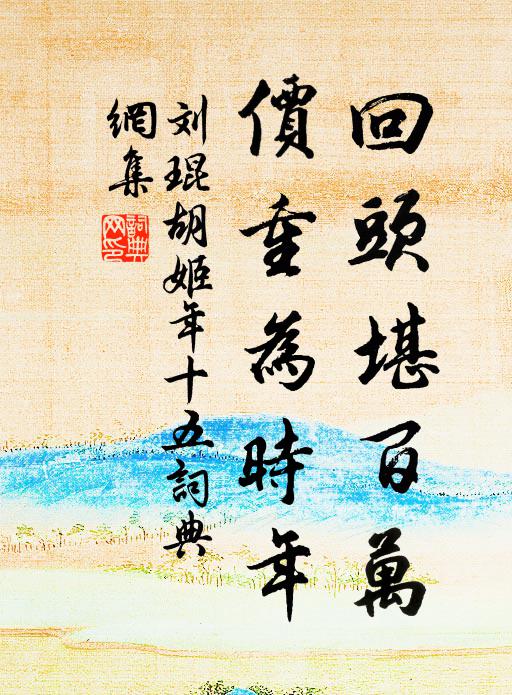 回頭堪百萬
價重為時年
刘琨胡姬年十五詞典
網集
詞典
网印